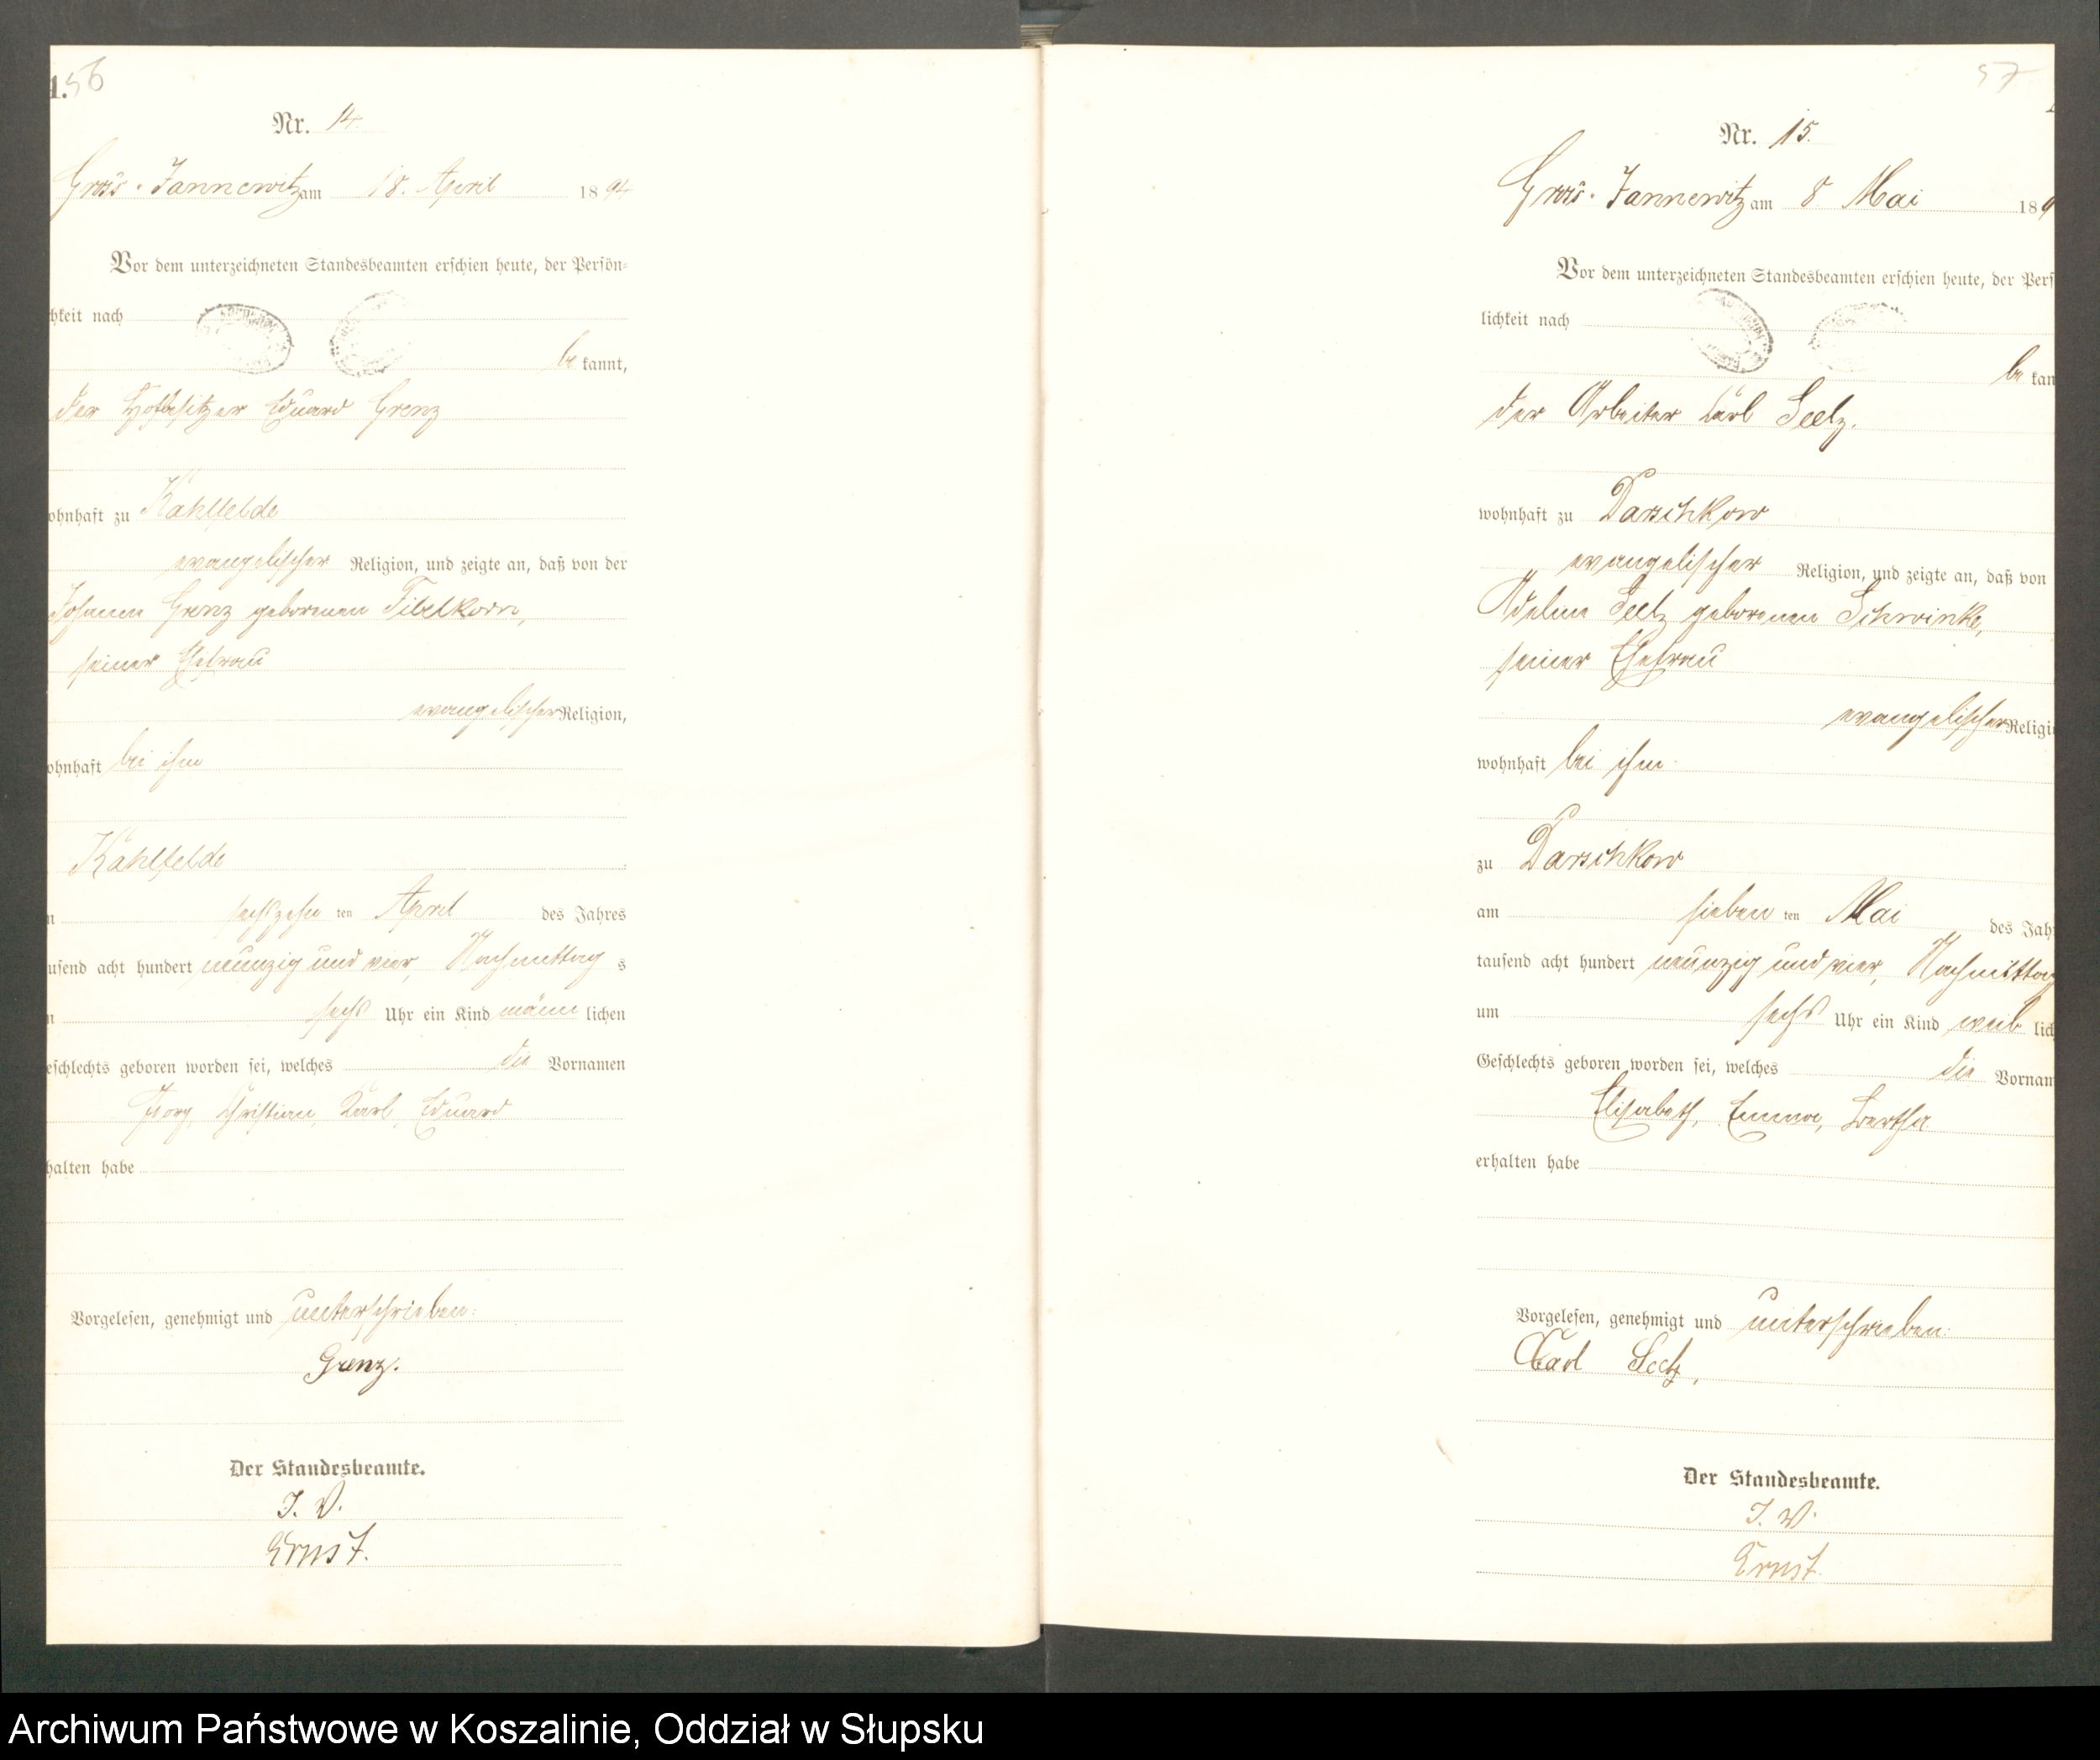 1.
56
Nr. 14.
Gross-Jannewitz am 18. April 1894
Vor dem unterzeichneten Standesbeamten erschien heute, der Persön-
hkeit nach
be kannt,
der Hofbesitzer Eduard Grenz
ohnhaft zu Kahlfelde
evangelischer Religion, und zeigte an, daß von der
Johanne Grenz geborenen Fibelkorn,
seiner Ehefrau
evangelischer Religion,
ohnhaft bei ihm
Kahlfelde
n sechszehn ten April des Jahres
usend acht hundert neunzig und vier, Nachmittag s
n sechs Uhr ein Kind männ lichen
eschlechts geboren worden sei, welches die Vornamen
Georg, Christian, Karl, Eduard
halten habe
Vorgelesen, genehmigt und unterschrieben:
Grenz.
Der Standesbeamte.
J. V.
Ernst.
57
Nr. 15.
Gross-Jannewitz am 8 Mai 189
Vor dem unterzeichneten Standesbeamten erschien heute, der Pers
lichkeit nach
be kan
der Arbeiter Karl Seelz.
wohnhaft zu Darschkow
evangelischer Religion, und zeigte an, daß von
Adeline Seelz geborenen Schwinke,
seiner Ehefrau
evangelischer Religi
wohnhaft bei ihm
zu Darschkow
am sieben ten Mai des Jah
tausend acht hundert neunzig und vier, Nachmittag
um sechs Uhr ein Kind weib lich
Geschlechts geboren worden sei, welches die Vornam
Elisabeth, Emma, Bertha
erhalten habe
Vorgelesen, genehmigt und unterschrieben:
Carl Seelz,
Der Standesbeamte.
J. V.
Ernst.
Archiwum Państwowe w Koszalinie, Oddział w Słupsku